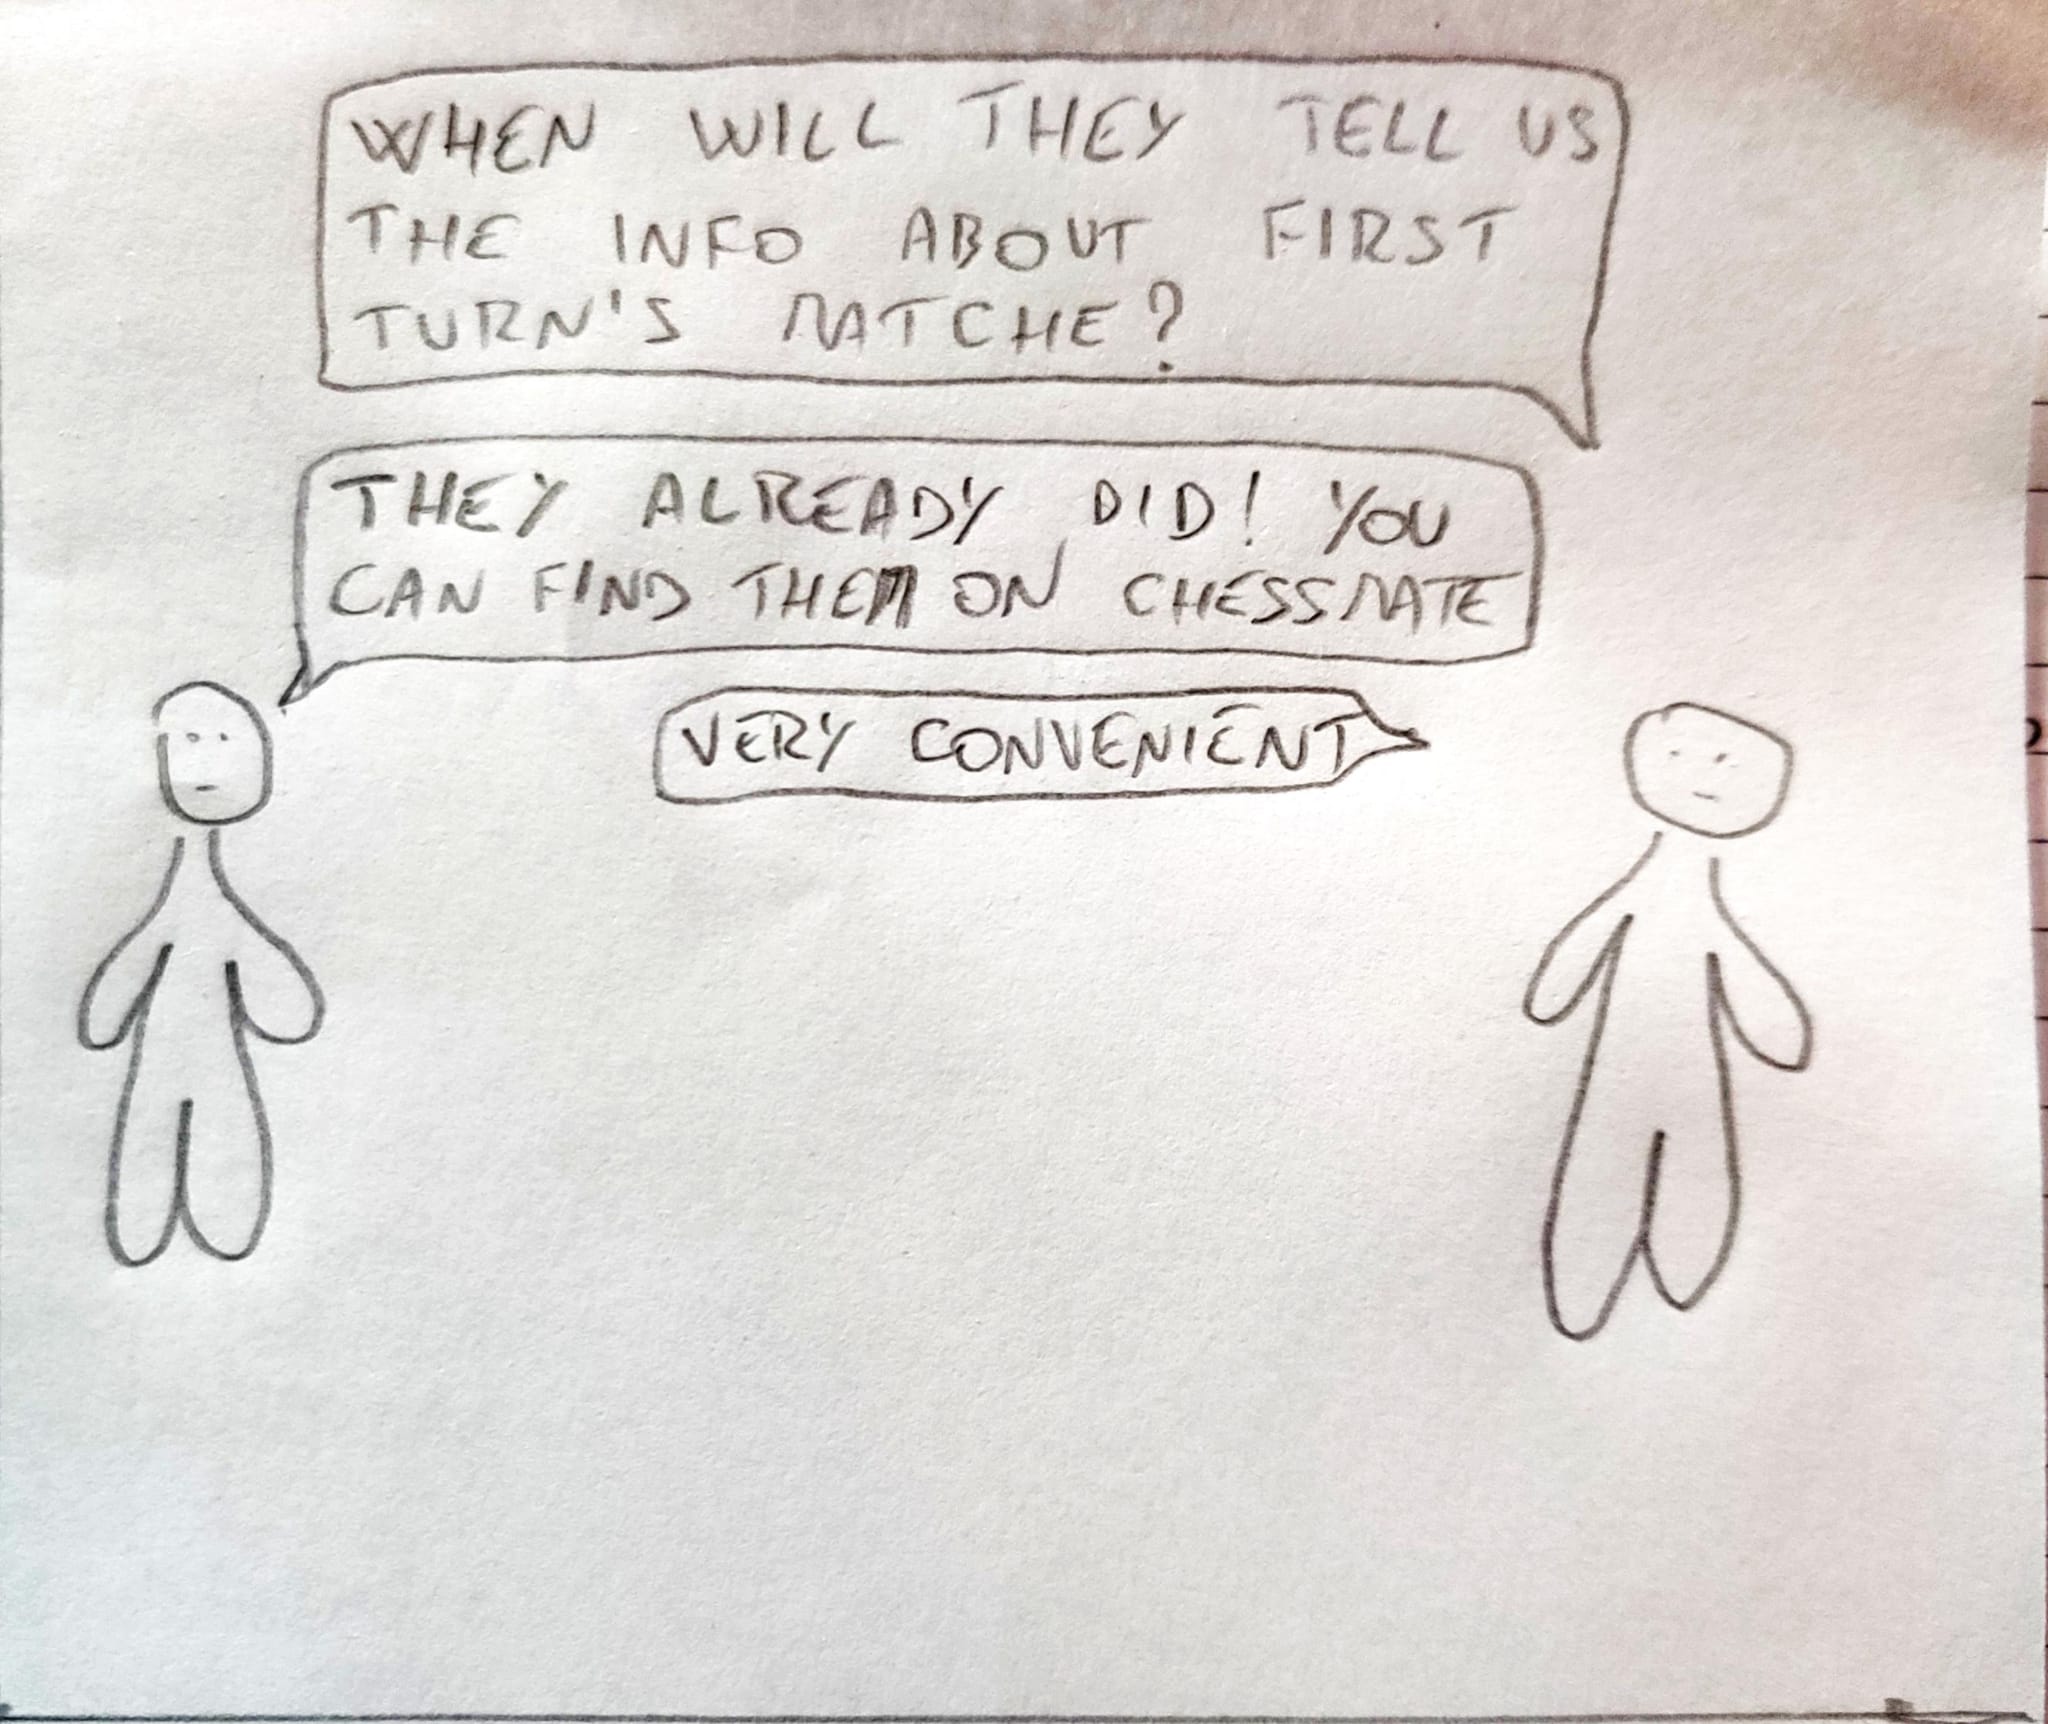 WHEN WILL THEY TELL US
THE INFO ABOUT FIRST
TURN'S MATCHE?
THEY ALREADY DID! YOU
CAN FIND THEM ON CHESSMATE
VERY CONVENIENT